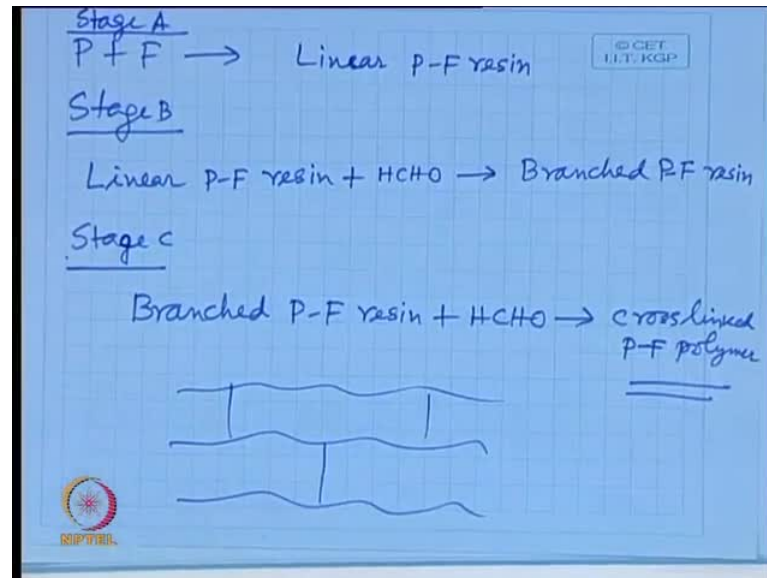 Stage A
P + F → Linear P-F resin
© CET
I.I.T. KGP
Stage B
Linear P-F resin + HCHO → Branched P-F resin
Stage C
Branched P-F resin + HCHO → cross linked
P-F polymer
NPTEL